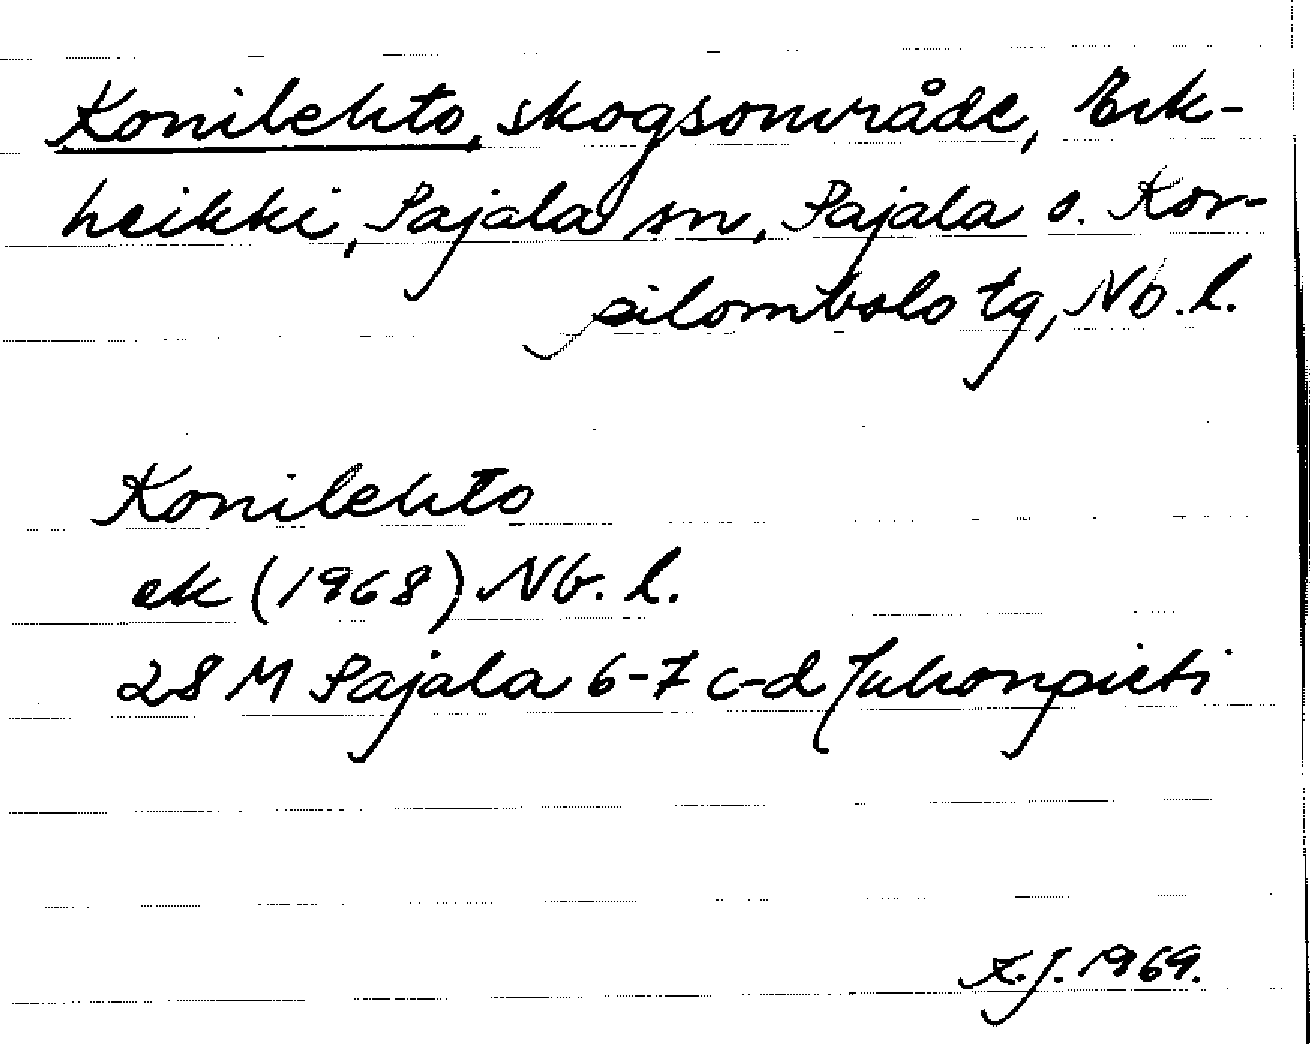 Konilehto, skogsområde, Erk-
heikki, Pajala sn, Pajala o. Kor-
pilombolo tg, Nb. l.
Konilehto
ek (1968) Nb. l.
28 M Pajala 6-7 c-d Juhonpieti
K.J. 1969.